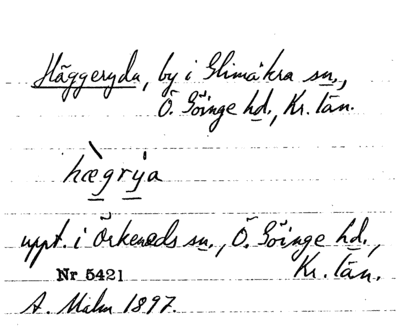 Häggeryda, by i Glimåkra sn.,
Ö. Göinge hd., Kr. län.
hæ̀grýa
uppt. i Örkeneds sn., Ö. Göinge hd.,
Nr 5421 Kr. län.
A. Malm 1897.